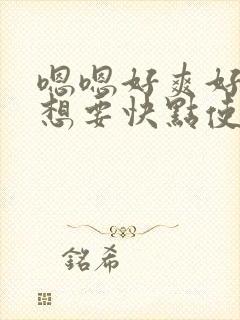 嗯嗯好爽好
想要快點使
銘希